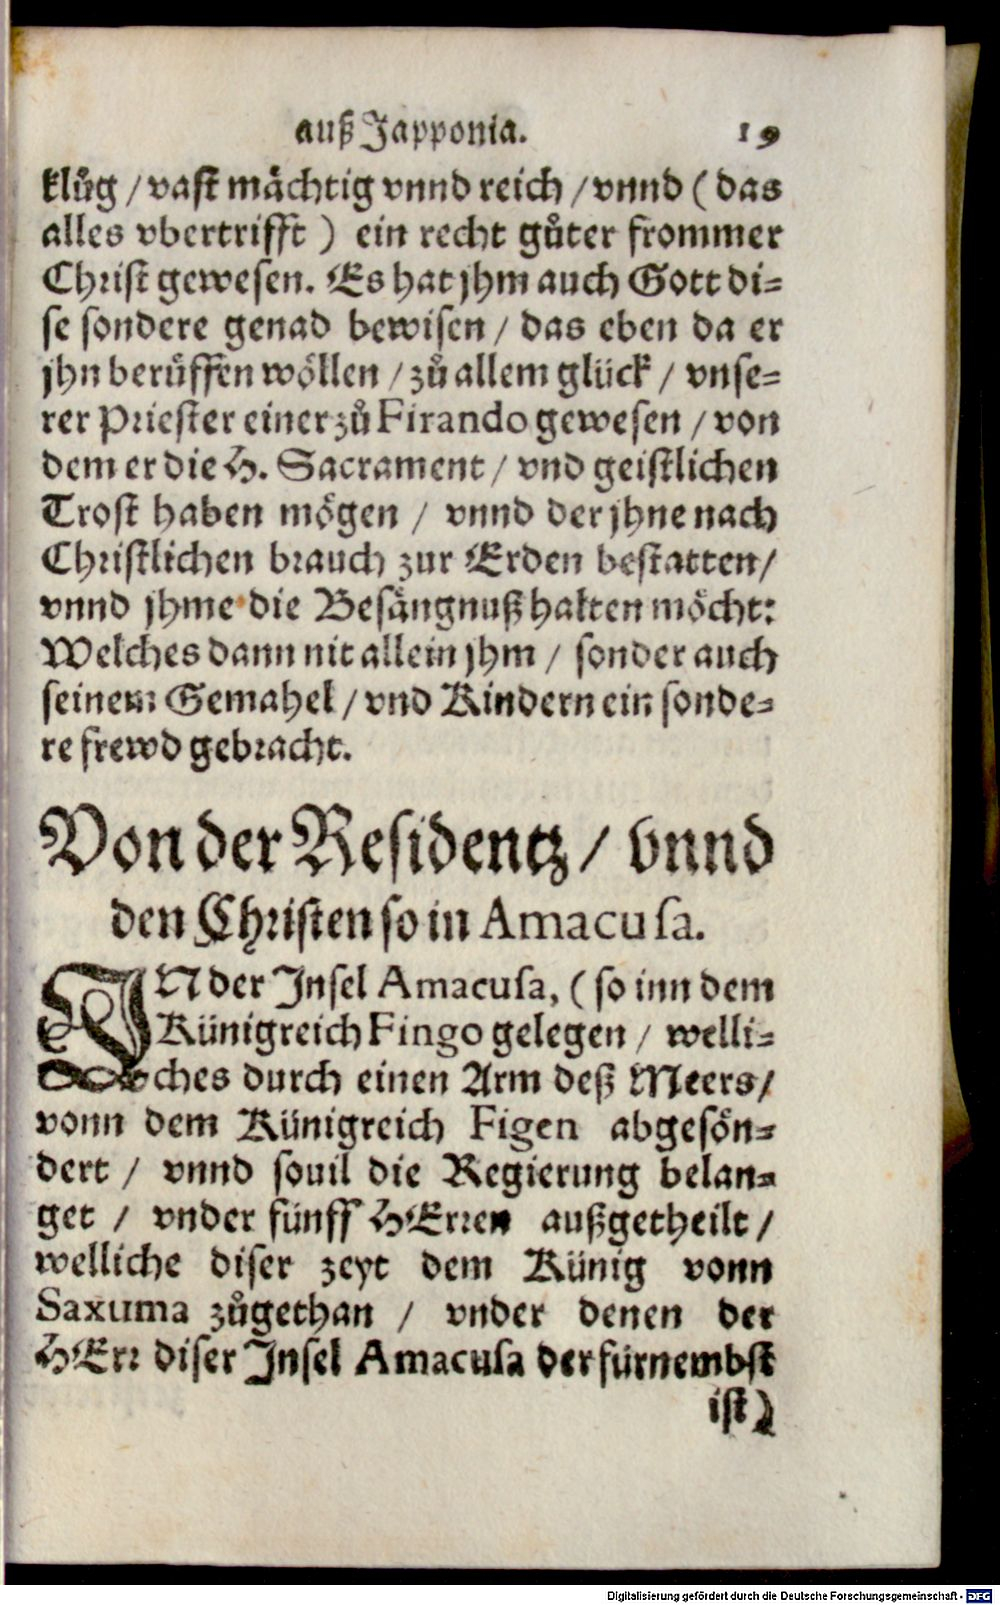 auß Japponia. 19
klůg / vast mächtig vnnd reich / vnnd ( das
alles vbertrifft ) ein recht gůter frommer
Christ gewesen. Es hat jhm auch Gott di-
se sondere genad bewisen / das eben da er
jhn berůffen wöllen / zů allem glück / vnse-
rer Priester einer zů Firando gewesen / von
dem er die H. Sacrament / vnd geistlichen
Trost haben mögen / vnnd der jhne nach
Christlichen brauch zur Erden bestatten/
vnnd jhme die Besängnuß halten möcht:
Welches dann nit allein jhm / sonder auch
seinem Gemahel / vnd Kindern ein sonde-
re frewd gebracht.
Von der Residentz / vnnd
den Christen so in Amacusa.
IN der Insel Amacusa, ( so inn dem
Künigreich Fingo gelegen / welli-
ches durch einen Arm deß Meers/
vonn dem Künigreich Figen abgesön-
dert / vnnd souil die Regierung belan-
get / vnder fünff HErren außgetheilt /
welliche diser zeyt dem Künig vonn
Saxuma zůgethan / vnder denen der
HErr diser Insel Amacusa der fürnembst
ist)
Digitalisierung gefördert durch die Deutsche Forschungsgemeinschaft - DFG